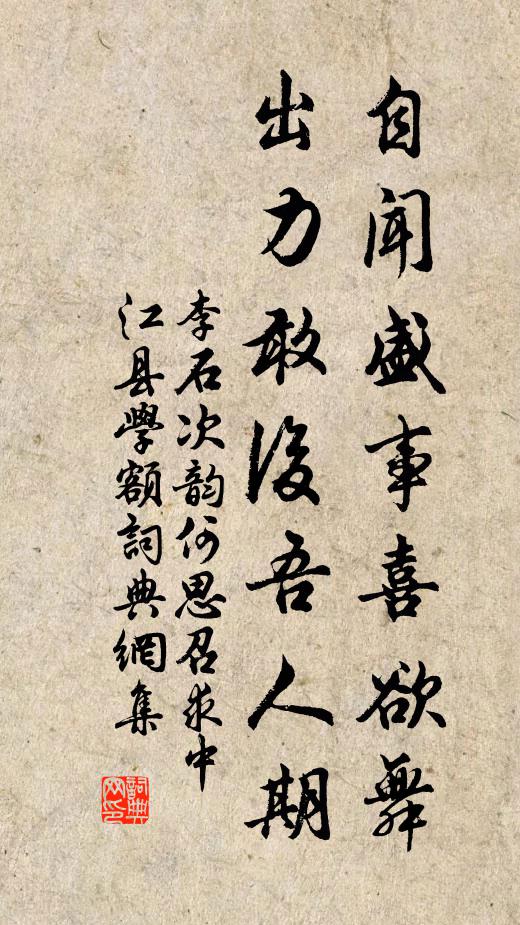 自闻盛事喜欲舞
出力敢后吾人期
李石次韵何思召求中
江县學额詞典網集
詞典网印